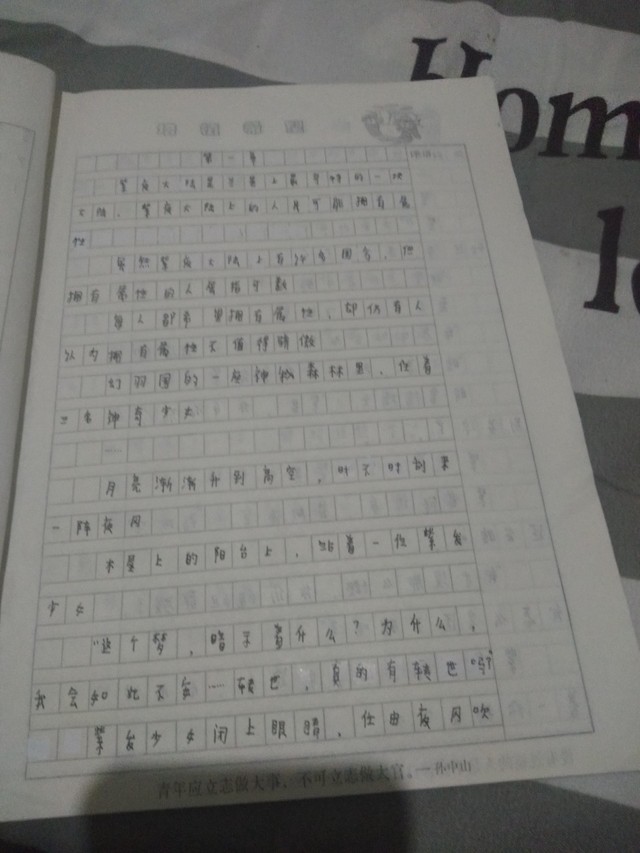 Hom
le
第一章
紫夜大陆是世界上最奇特的一块
大陆，紫夜大陆上的人月可能拥有属
性
虽然紫夜大陆上有许多国家，但
拥有属性的人屈指可数
每人都希望拥有属性，却仍有人
以为拥有属性不值得骄傲
幻羽国的一座神秘森林里，住着
三名神奇少女
月亮渐渐升到高空，时不时刮来
一阵夜风
木屋上的阳台上，站着一位紫发
少女
“这个梦，暗示着什么？为什么，
我会如此不安……转世，真的有转世吗？
紫发少女闭上眼睛，任由夜风吹
青年应立志做大事，不可立志做大官。—孙中山